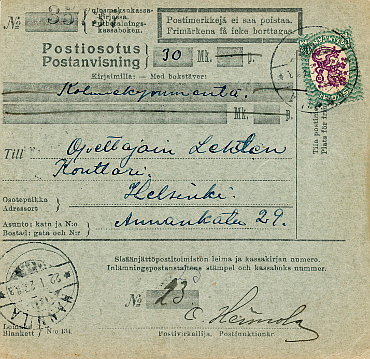 ulosmaksukassa-
kirjassa.
Utbetalnings-
kassaboken.
№ 35
Postimerkkejä ei saa poistaa.
Frimärkena få icke borttagas.
Postiosotus
Postanvisning
30 Mk. p.
Kirjaimilla: — Med bokstäver:
Kolmekymmentä
Mk. p.
Till Opettajain Lehden
Konttori.
Osotepaikka
Adressort
Helsinki.
Asunto: katu ja N:o
Bostad: gata och N:r
Annankatu 29.
Tila postim
Plats för fr
Sisäänjättöpostitoimiston leima ja kassakirjan numero.
Inlämningspostanstaltens stämpel och kassaboks nummer.
№ 23
HANNILA
E. Heimola
Blankett N:o 134
Postivirkailija. Postfunktionär.